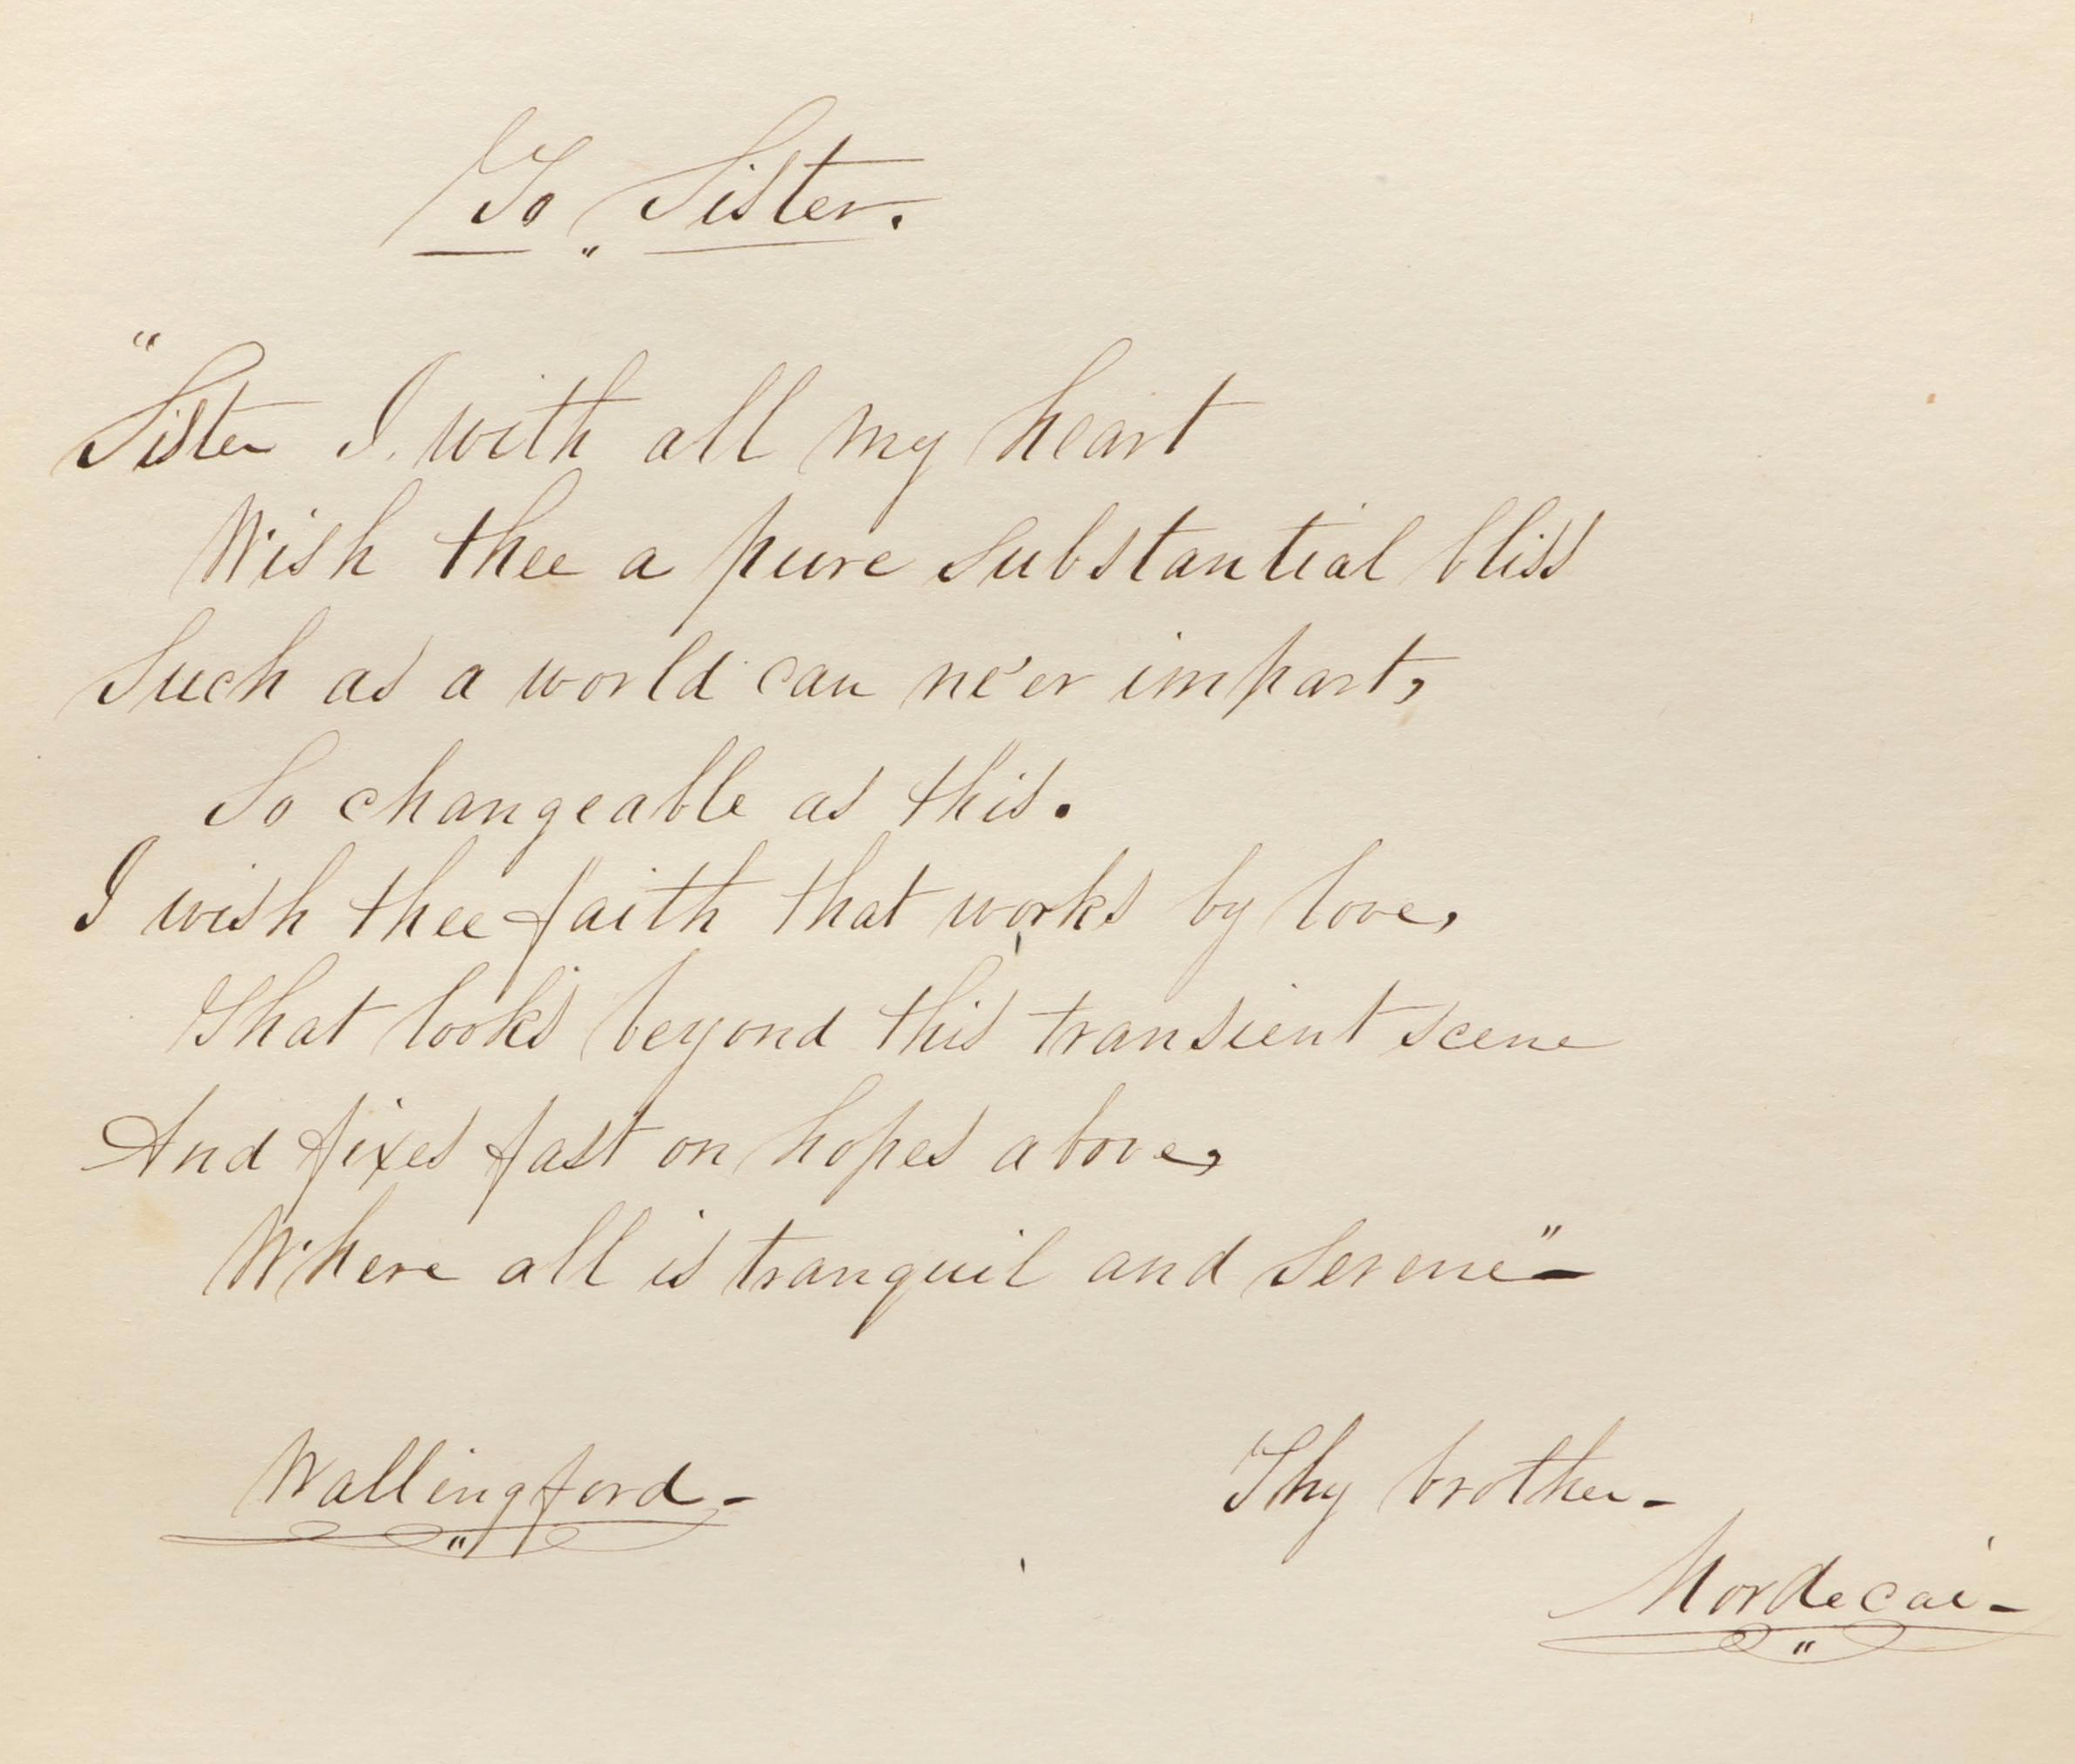 To Sister.
"Sister I with all my heart
Wish thee a pure substantial bliss
Such as a world can ne'er impart,
So changeable as this.
I wish thee faith that works by love,
That looks beyond this transient scene
And fixes fast on hopes above,
Where all is tranquil and serene"-
Wallingford - Thy brother -
Mordecai -